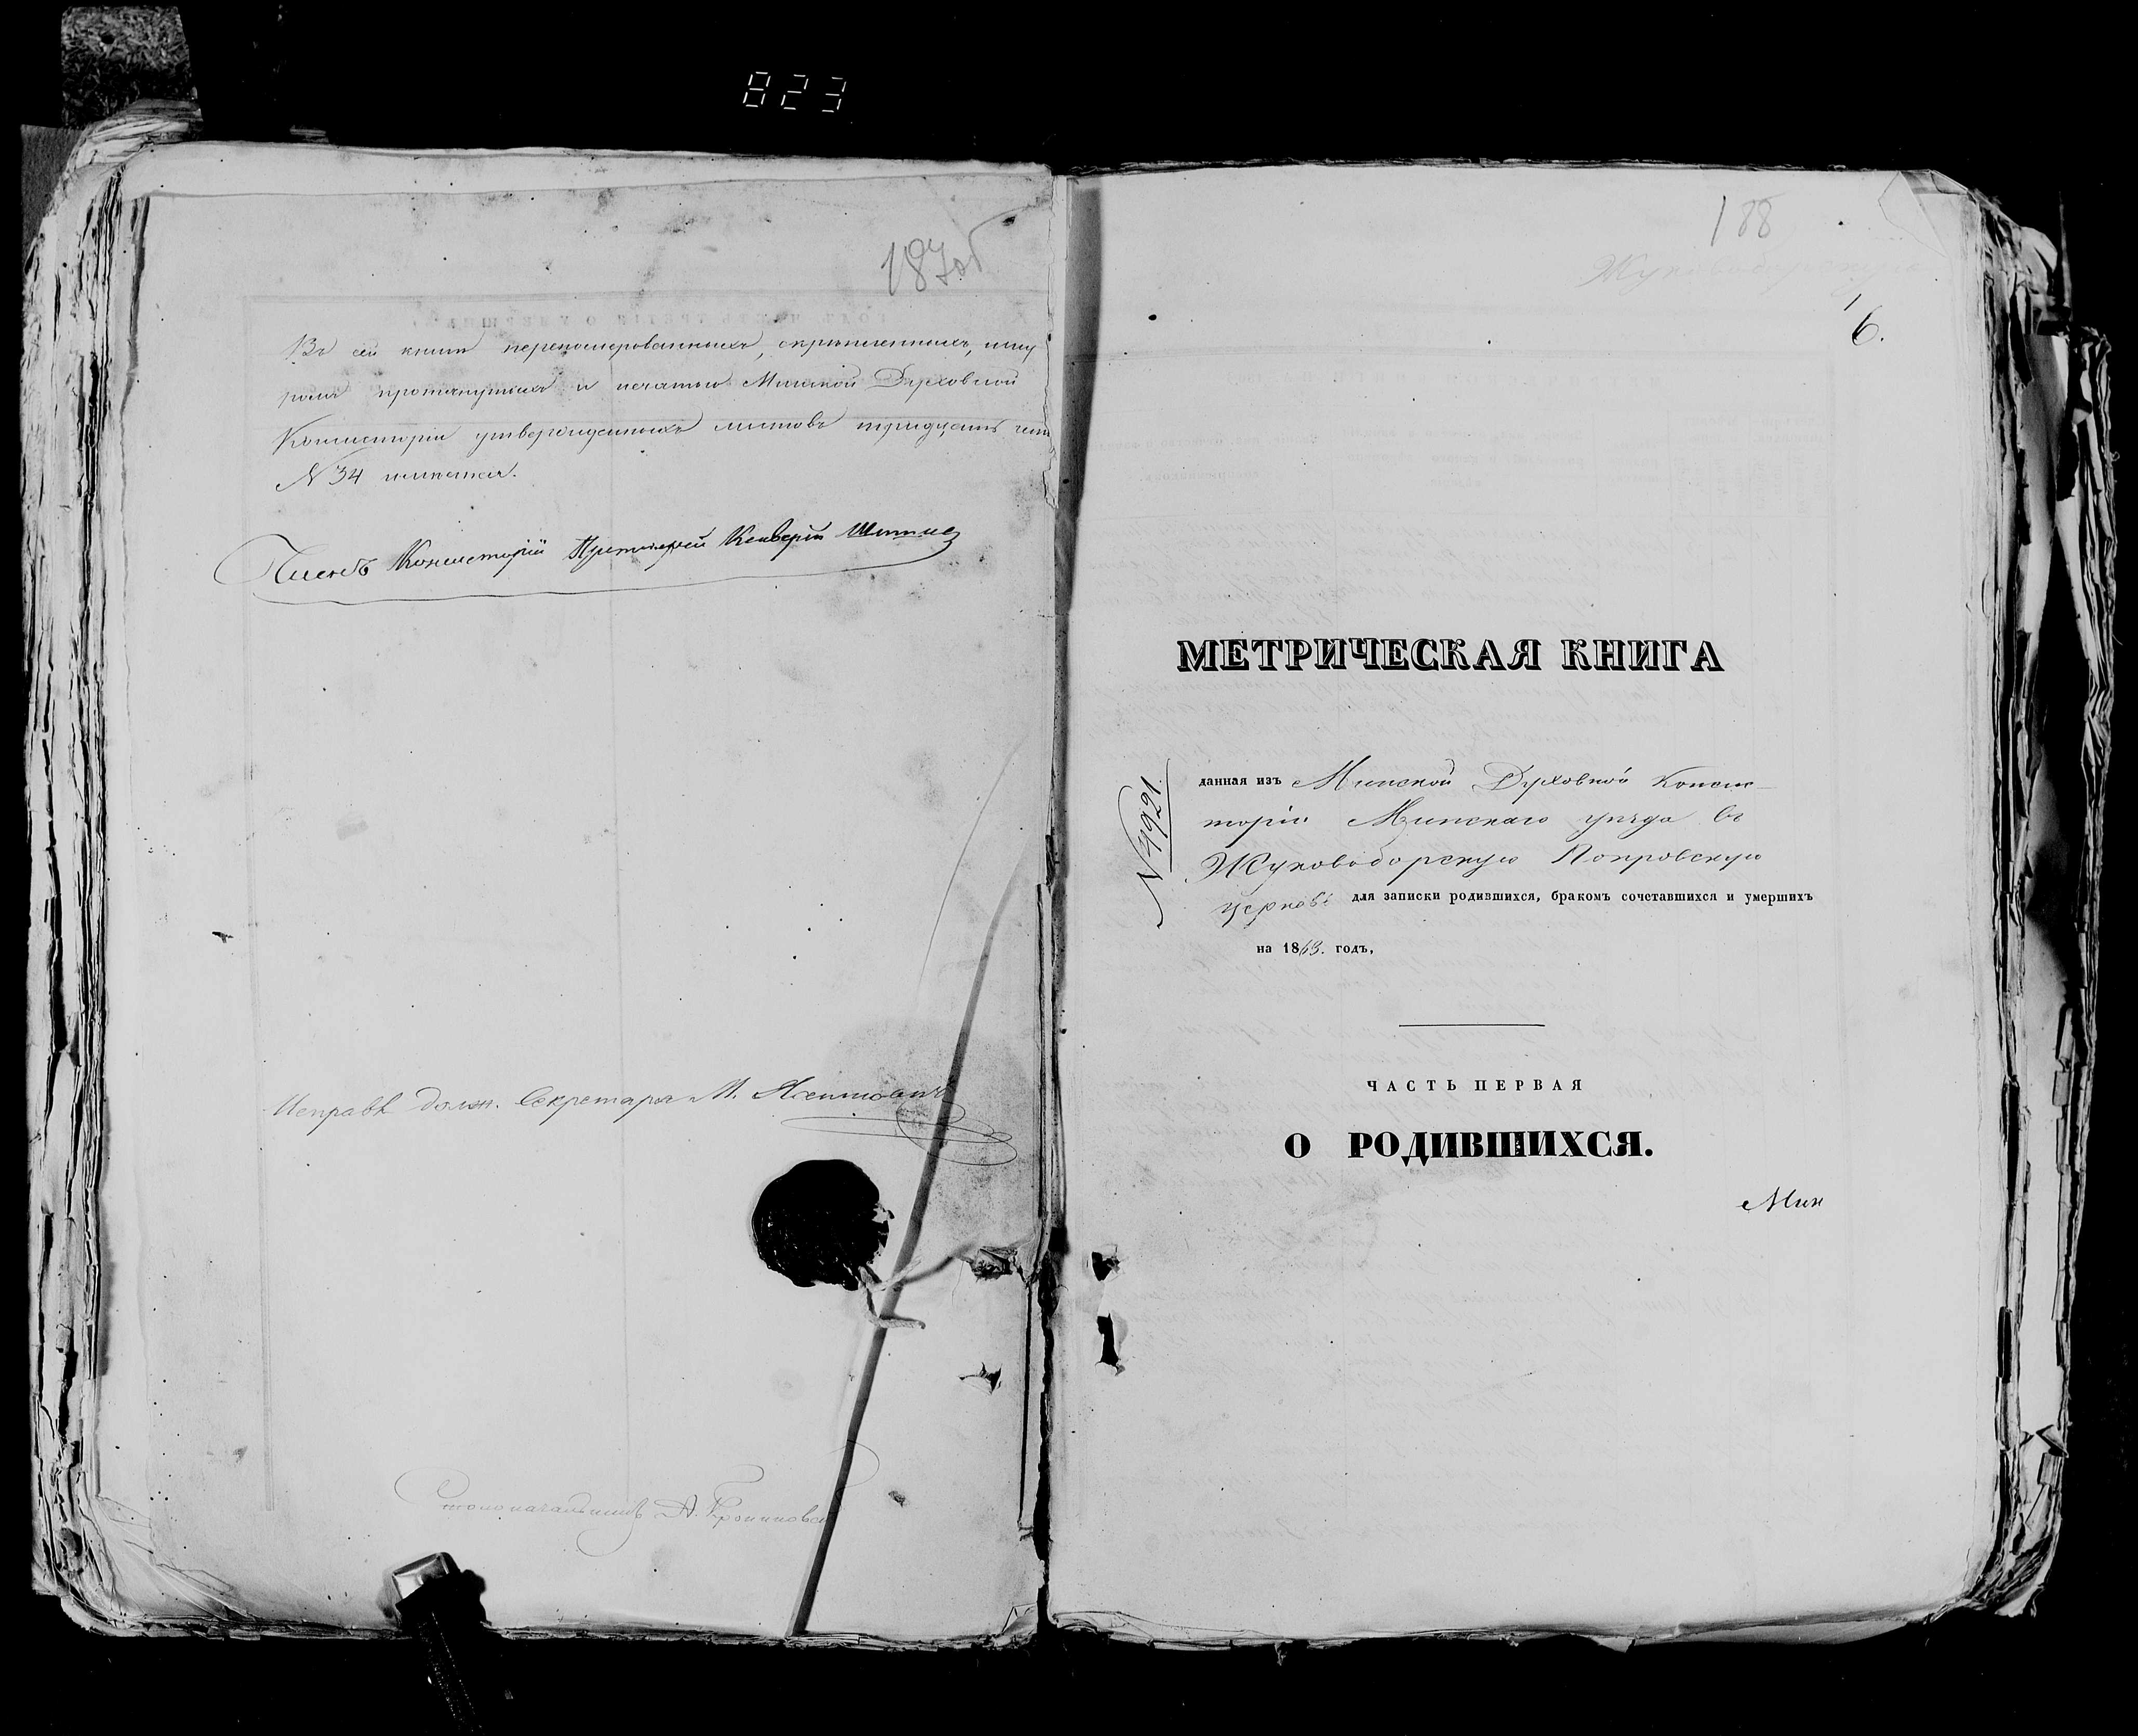 823
187об
Въ сей книгѣ перенумерованныхъ, скрѣпленныхъ, шну
ромъ протянутыхъ и печатью Минской Духовной
Консисторіи утвержденныхъ листовъ тридцать чет
N 34 имѣется.
Членъ Консисторіи Протоіерей
Исправл. долж. Секретаря М.
Столоначальникъ А.
188
Жуковоборскую
1
6.
МЕТРИЧЕСКАЯ КНИГА
N 4921.
данная изъ Минской Духовной Консис-
торіи Минскаго уѣзда въ
Жуковоборскую Покровскую
церковь для записки родившихся, бракомъ сочетавшихся и умершихъ
на 1863. годъ,
ЧАСТЬ ПЕРВАЯ
О РОДИВШИХСЯ.
Мин